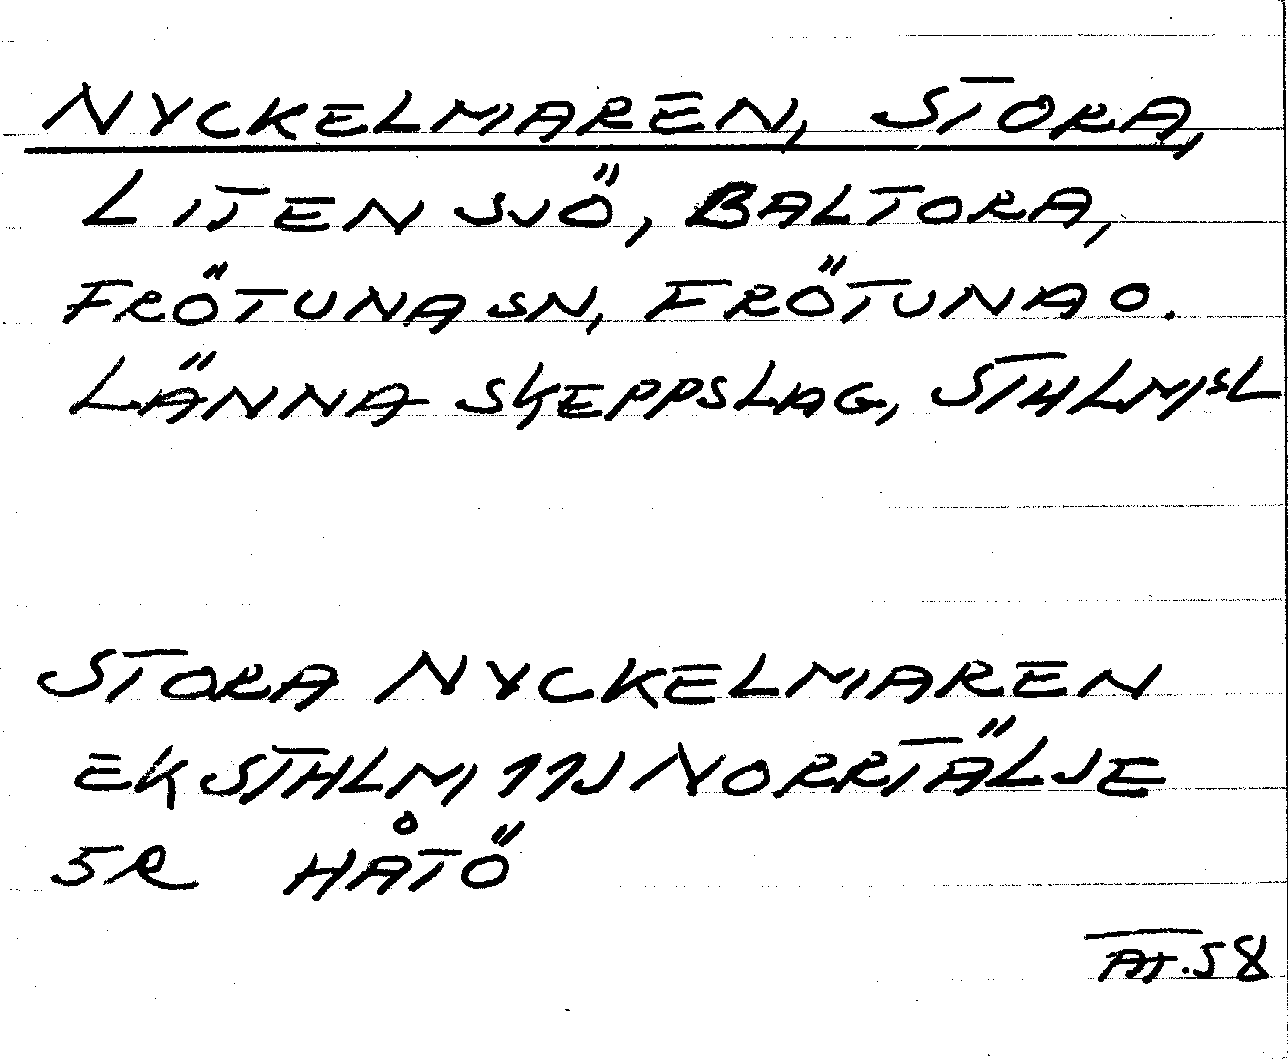 NYCKELMAREN, STORA,
LITEN SJÖ, BALTORA,
FRÖTUNA SN, FRÖTUNA O.
LÄNNA SKEPPSLAG, STHLMSL
STORA NYCKELMAREN
EK STHLM 11J NORRTÄLJE
5R HÅTÖ
AT.58